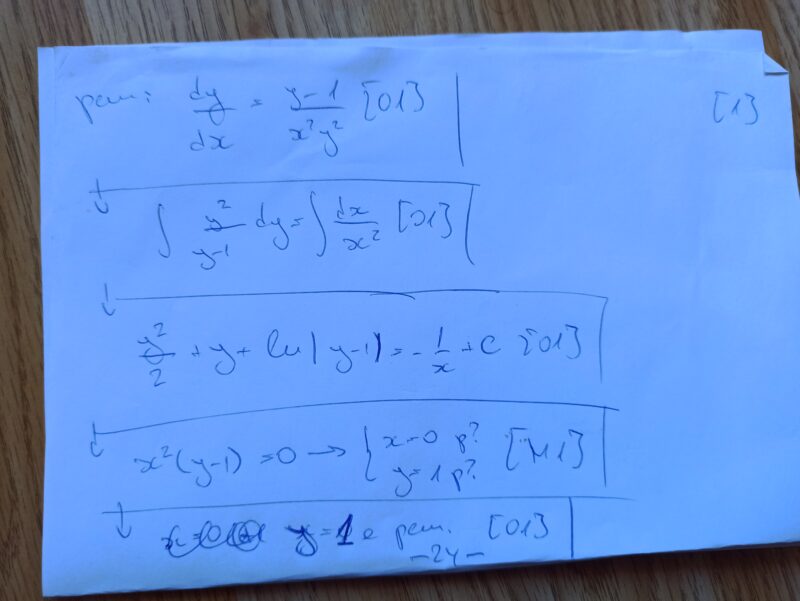 реш: dy/dx = y-1/x²y² [01]
[1]
∫ y²/y-1 dy = ∫ dx/x² [01]
y²/2 + y + ln|y-1| = -1/x + C [01]
x²(y-1) = 0 → { x=0 р? y=1 р? [M1]
y=1 е реш. [01]
-24-